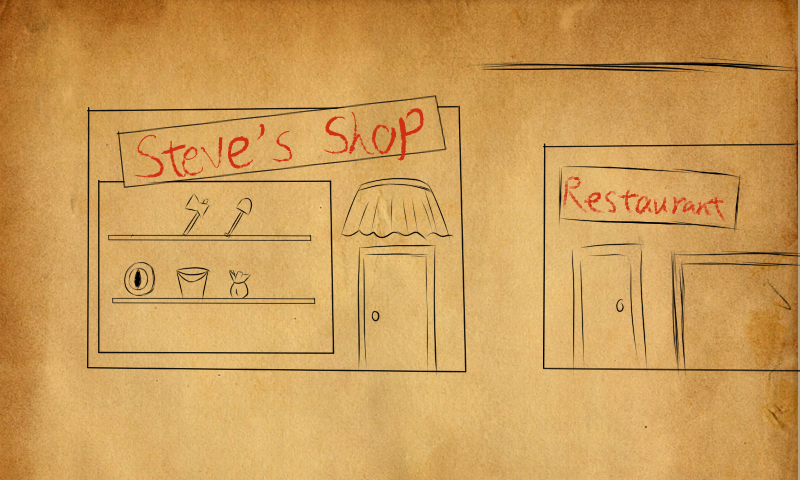 Steve's Shop
Restaurant